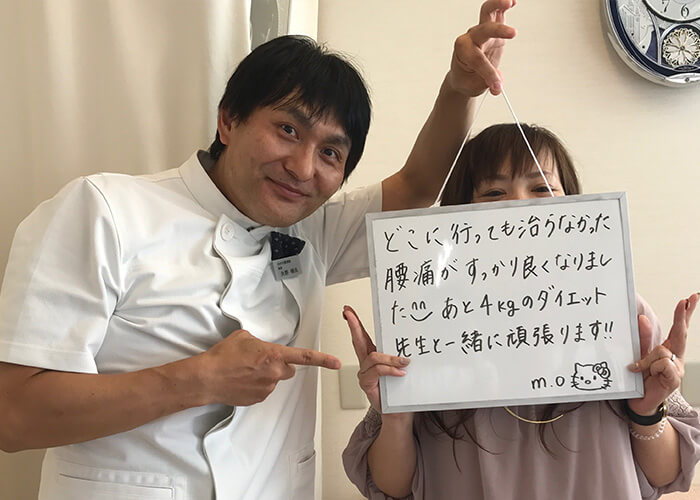 どこに行っても治らなかった
腰痛がすっかり良くなりまし
た あと4kgのダイエット
先生と一緒に頑張ります!!
m.o